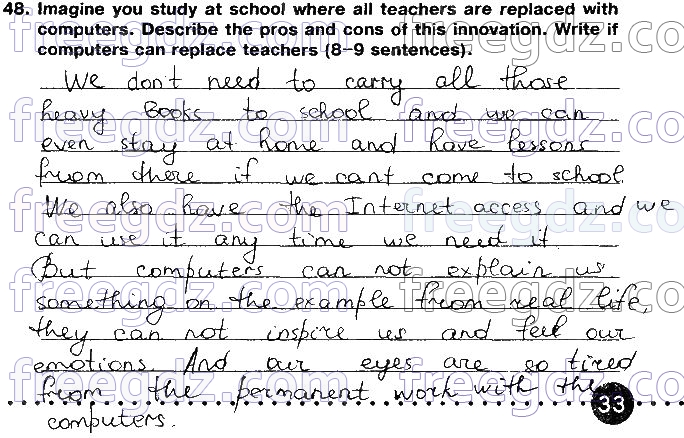 48. Imagine you study at school where all teachers are replaced with
computers. Describe the pros and cons of this innovation. Write if
computers can replace teachers (8–9 sentences).
We don't need to carry all those
heavy Books to school and we can
even stay at home and have lessons
from there if we can't come to school.
We also have the Internet access and we
can use it any time we need it.
But computers can not explain us
something on the example from real life,
they can not inspire us and feel our
emotions. And our eyes are so tired
from the permanent work with the
computers.
33
freegdz.com